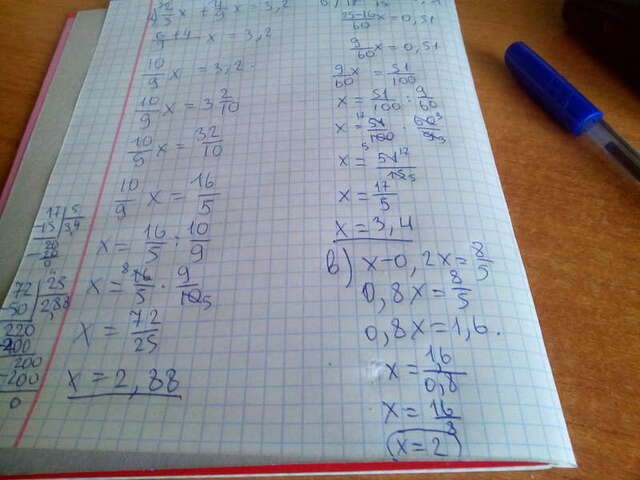 x + 4/9 x = 3,2
6+4/9 x = 3,2
10/9 x = 3,2.
10/9 x = 3 2/10
10/5 x = 32/10
10/9 x = 16/5
x = 16/5 : 10/9
x = 16/5 · 9/10 5
x = 72/25
x = 2,88
17 5
15 3,4
20
72 25
50 2,88
220
200
200
-200
0
25-16/60 x = 0,51
9/60 x = 0,51
9/60 x = 51/100
x = 51/100 : 9/60
x = 17/5
x = 3,4
в) x-0,2x = 8/5
0,8x = 8/5
0,8x = 1,6.
x = 1,6/0,8
x = 16/8
x = 2